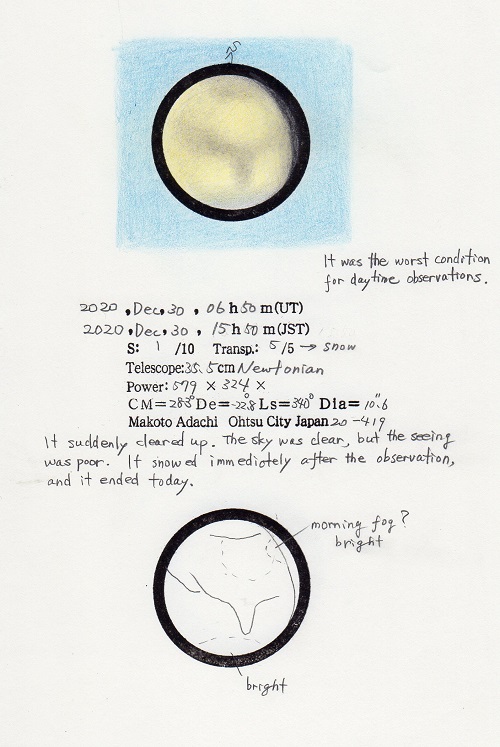 It was the worst condition
for daytime observations.
2020, Dec, 30, 06 h 50 m (UT)
2020, Dec, 30, 15 h 50 m (JST)
S: 1 /10 Transp.: 5 /5 → snow
Telescope: 35.5cm Newtonian
Power: 579 × 324 ×
CM=283° De=-22.8° Ls=340° Dia=10."6
Makoto Adachi Ohtsu City Japan 20-419
It suddenly cleared up. The sky was clear, but the seeing
was poor. It snowed immedietely after the observation,
and it ended today.
morning fog?
bright
bright